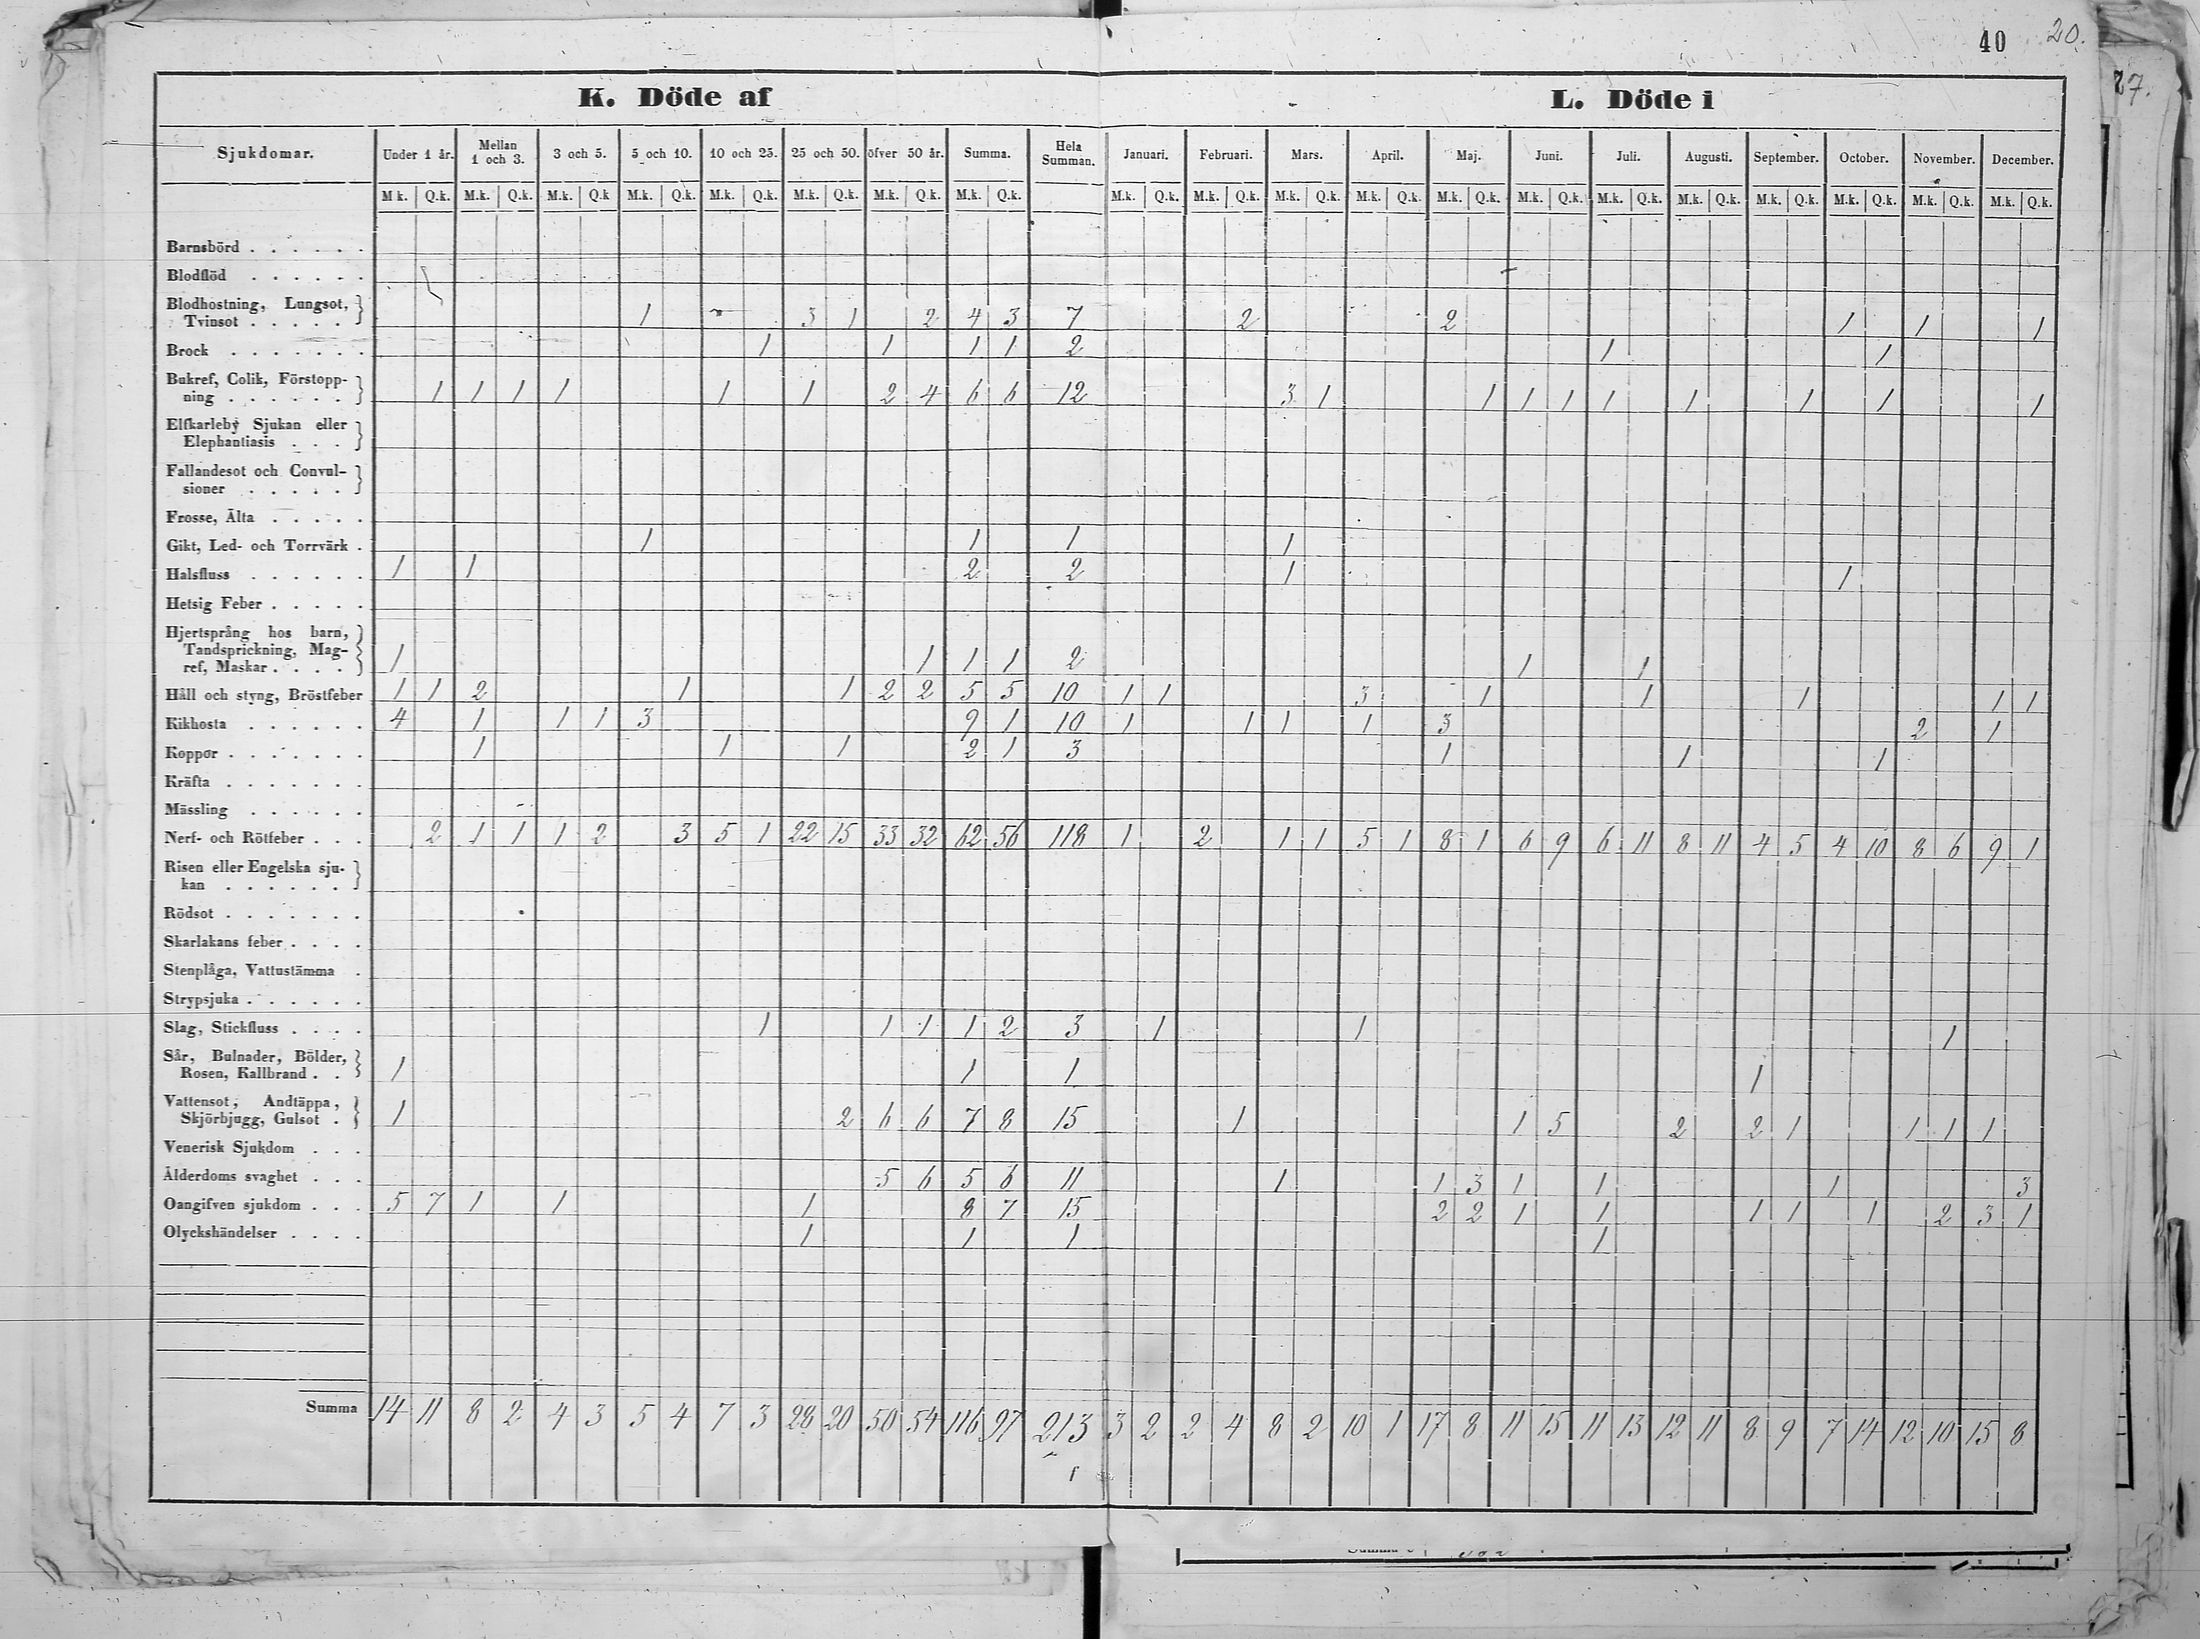 40 20.
27.
K. Döde af L. Döde i
Sjukdomar. Under 1 år. Mellan 1 och 3. 3 och 5. 5 och 10. 10 och 25. 25 och 50. öfver 50 år. Summa. Hela Summan. Januari. Februari. Mars. April. Maj. Juni. Juli. Augusti. September. October. November. December.
M.k. Q.k. M.k. Q.k. M.k. Q.k M.k. Q.k. M.k. Q.k. M.k. Q.k. M.k. Q.k. M.k. Q.k. M.k. Q.k. M.k. Q.k. M.k. Q.k. M.k. Q.k. M.k. Q.k. M.k. Q.k. M.k. Q.k. M.k. Q.k. M.k. Q.k. M.k. Q.k. M.k. Q.k. M.k. Q.k.
Barnsbörd
Blodflöd
Blodhostning, Lungsot,
Tvinsot 1 3 1 2 4 3 7 2 2 1 1 1
Brock 1 1 1 1 2 1 1
Bukref, Colik, Förstopp-
ning 1 1 1 1 1 1 2 4 6 6 12 3 1 1 1 1 1 1 1 1 1
Elfkarleby Sjukan eller
Elephantiasis
Fallandesot och Convul-
sioner
Frosse, Älta
Gikt, Led- och Torrvärk 1 1 1 1
Halsfluss 1 1 2 2 1 1
Hetsig Feber
Hjertsprång hos barn,
Tandsprickning, Mag-
ref, Maskar 1 1 1 1 2 1 1
Håll och styng, Bröstfeber 1 1 2 1 1 2 2 5 5 10 1 1 3 1 1 1 1 1
Kikhosta 4 1 1 1 3 9 1 10 1 1 1 1 3 2 1
Koppor 1 1 1 2 1 3 1 1 1
Kräfta
Mässling
Nerf- och Rötfeber 2 1 1 1 2 3 5 1 22 15 33 32 62 56 118 1 2 1 1 5 1 8 1 6 9 6 11 8 11 4 5 4 10 8 6 9 1
Risen eller Engelska sju-
kan
Rödsot
Skarlakans feber
Stenplåga, Vattustämma
Strypsjuka
Slag, Stickfluss 1 1 1 1 2 3 1 1 1
Sår, Bulnader, Bölder,
Rosen, Kallbrand 1 1 1 1
Vattensot, Andtäppa,
Skjörbjugg, Gulsot 1 2 6 6 7 8 15 1 1 5 2 2 1 1 1 1
Venerisk Sjukdom
Ålderdoms svaghet 5 6 5 6 11 1 1 3 1 1 1 3
Oangifven sjukdom 5 7 1 1 1 8 7 15 2 2 1 1 1 1 1 2 3 1
Olyckshändelser 1 1 1 1
Summa 14 11 8 2 4 3 5 4 7 3 28 20 50 54 116 97 213 3 2 2 4 8 2 10 1 17 8 11 15 11 13 12 11 8 9 7 14 12 10 15 8